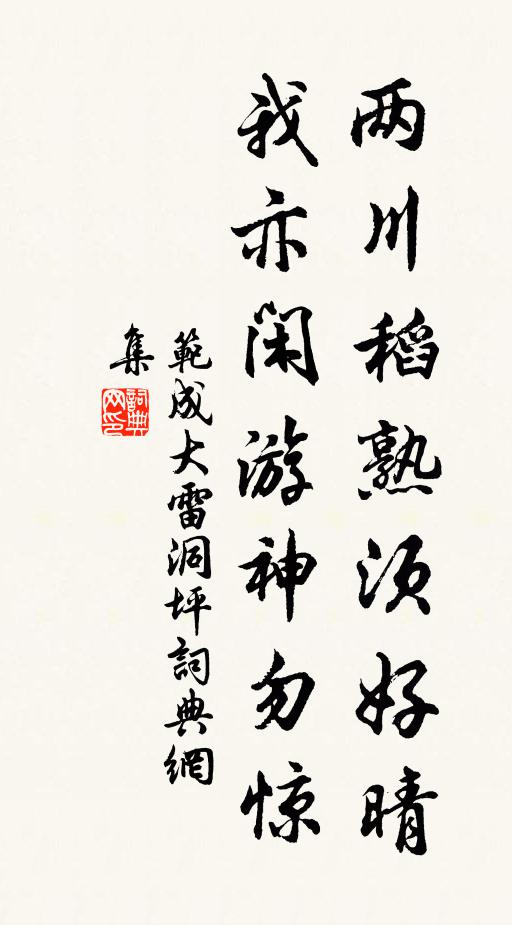 两川稻熟须好晴
我亦闲游神勿惊
範成大雷洞坪詞典網
集
詞典
网印